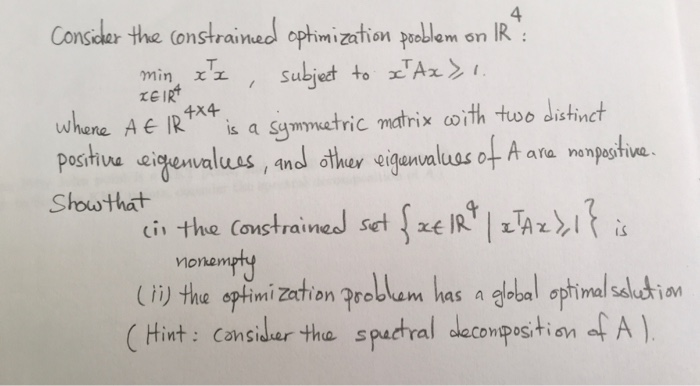 Consider the constrained optimization problem on ℝ⁴:
min xᵀx, subject to xᵀAx ≥ 1.
x∈ℝ⁴
where A ∈ ℝ⁴ˣ⁴ is a symmetric matrix with two distinct
positive eigenvalues, and other eigenvalues of A are nonpositive.
Show that
(i) the constrained set {x∈ℝ⁴ | xᵀAx ≥ 1} is
nonempty
(ii) the optimization problem has a global optimal solution
(Hint: Consider the spectral decomposition of A).